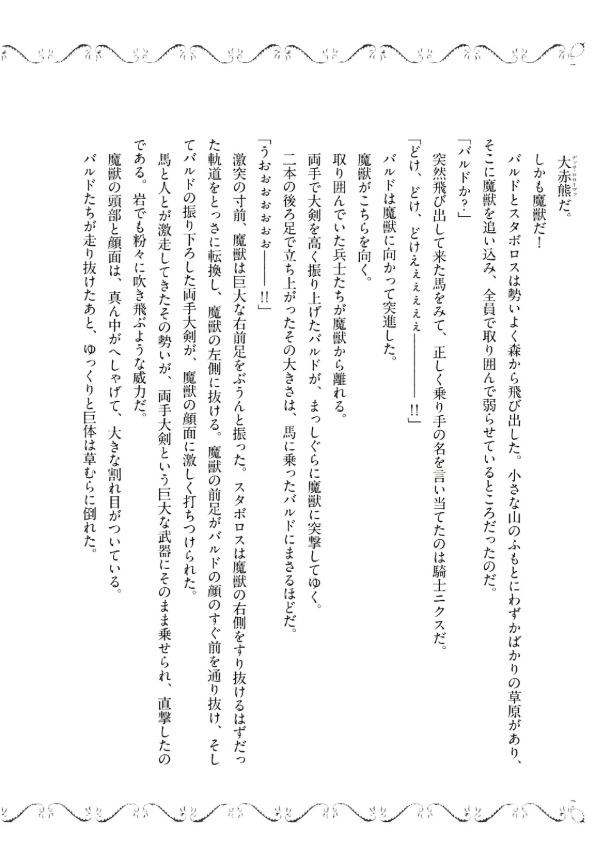 大赤熊だ。
しかも魔獣だ！
バルドとスタボロスは勢いよく森から飛び出した。小さな山のふもとにわずかばかりの草原があり、
そこに魔獣を追い込み、全員で取り囲んで弱らせているところだったのだ。
「バルドか？」
突然飛び出して来た馬をみて、正しく乗り手の名を言い当てたのは騎士ニクスだ。
「どけ、どけ、どけえぇぇぇぇぇ————!!」
バルドは魔獣に向かって突進した。
魔獣がこちらを向く。
取り囲んでいた兵士たちが魔獣から離れる。
両手で大剣を高く振り上げたバルドが、まっしぐらに魔獣に突撃してゆく。
二本の後ろ足で立ち上がったその大きさは、馬に乗ったバルドにまさるほどだ。
「うおぉぉぉぉぉぉ————!!」
激突の寸前、魔獣は巨大な右前足をぶうんと振った。スタボロスは魔獣の右側をすり抜けるはずだっ
た軌道をとっさに転換し、魔獣の左側に抜ける。魔獣の前足がバルドの顔のすぐ前を通り抜け、そし
てバルドの振り下ろした両手大剣が、魔獣の顔面に激しく打ちつけられた。
馬と人とが激走してきたその勢いが、両手大剣という巨大な武器にそのまま乗せられ、直撃したの
である。岩でも粉々に吹き飛ぶような威力だ。
魔獣の頭部と顔面は、真ん中がへしゃげて、大きな割れ目がついている。
バルドたちが走り抜けたあと、ゆっくりと巨体は草むらに倒れた。